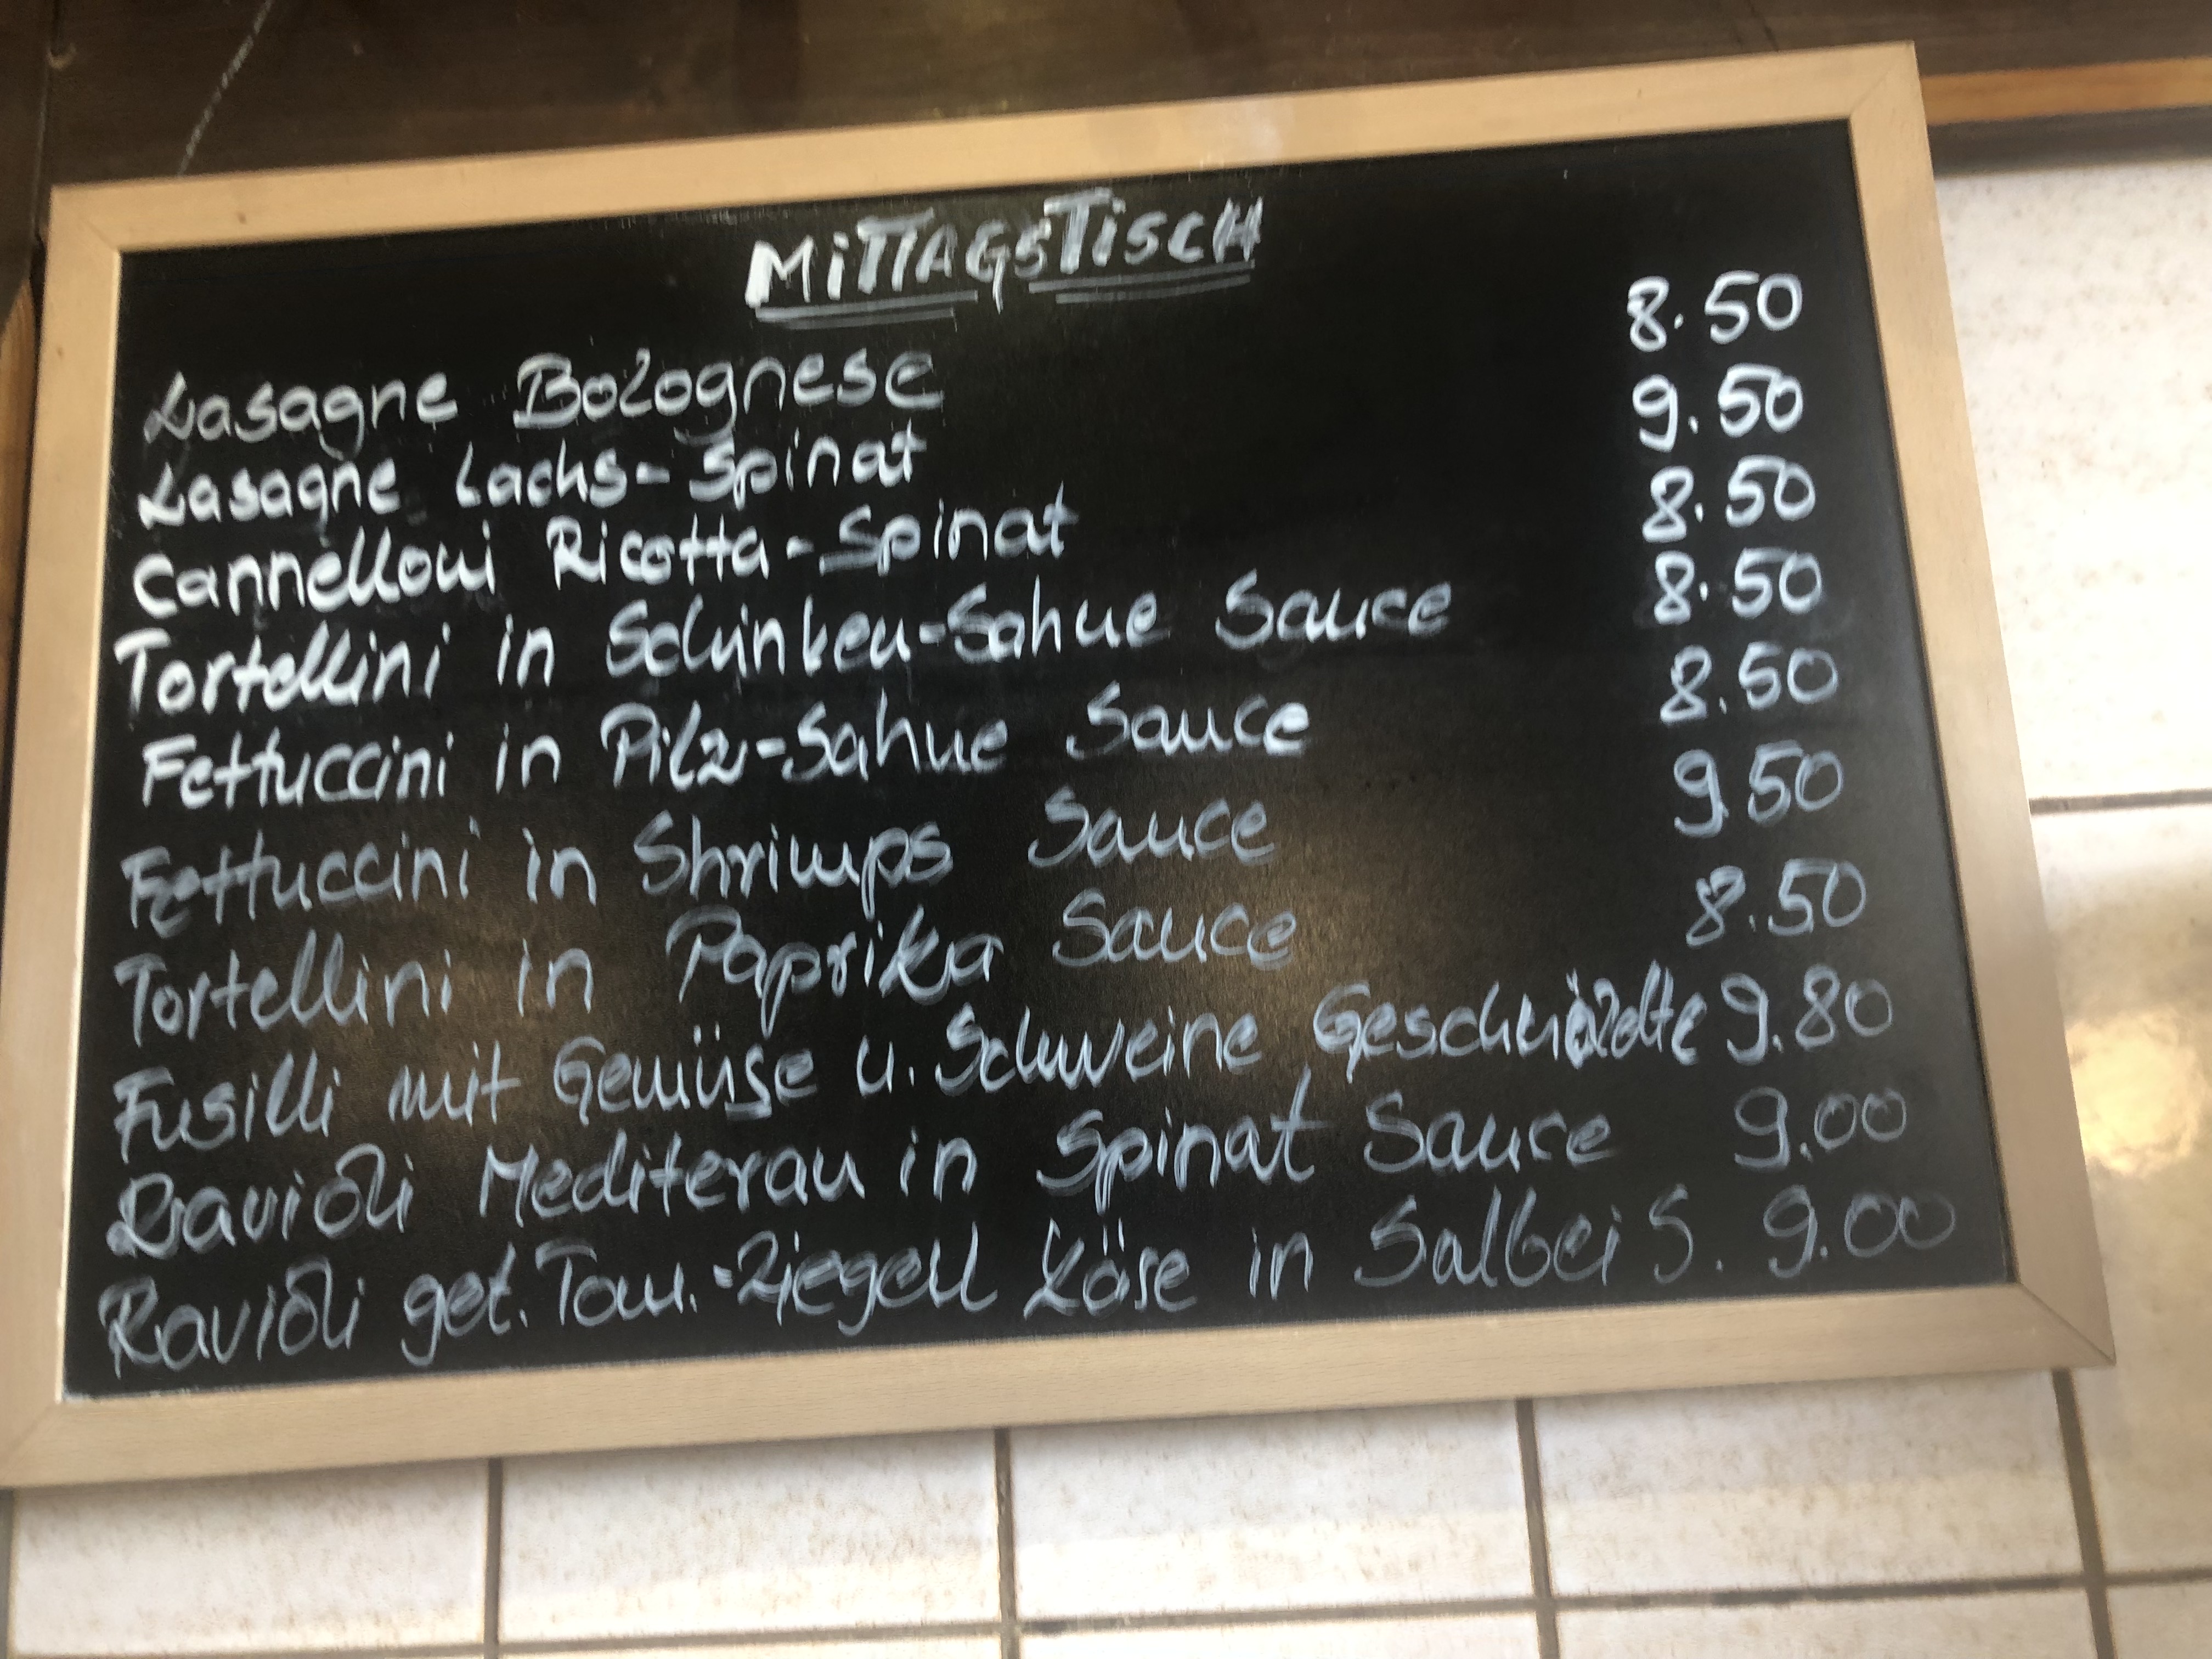 MITTAGSTISCH
Lasagne Bolognese 8.50
Lasagne Lachs-Spinat 9.50
Cannelloni Ricotta-Spinat 8.50
Tortellini in Schinken-Sahne Sauce 8.50
Fettuccini in Pilz-Sahne Sauce 8.50
Fettuccini in Shrimps Sauce 9.50
Tortellini in Paprika Sauce 8.50
Fusilli mit Gemüse u. Schweine 9.80
Ravioli Mediteran in Spinat Sauce 9.00
Ravioli get. Tom.-Ziegen Käse in Salbei S. 9.00